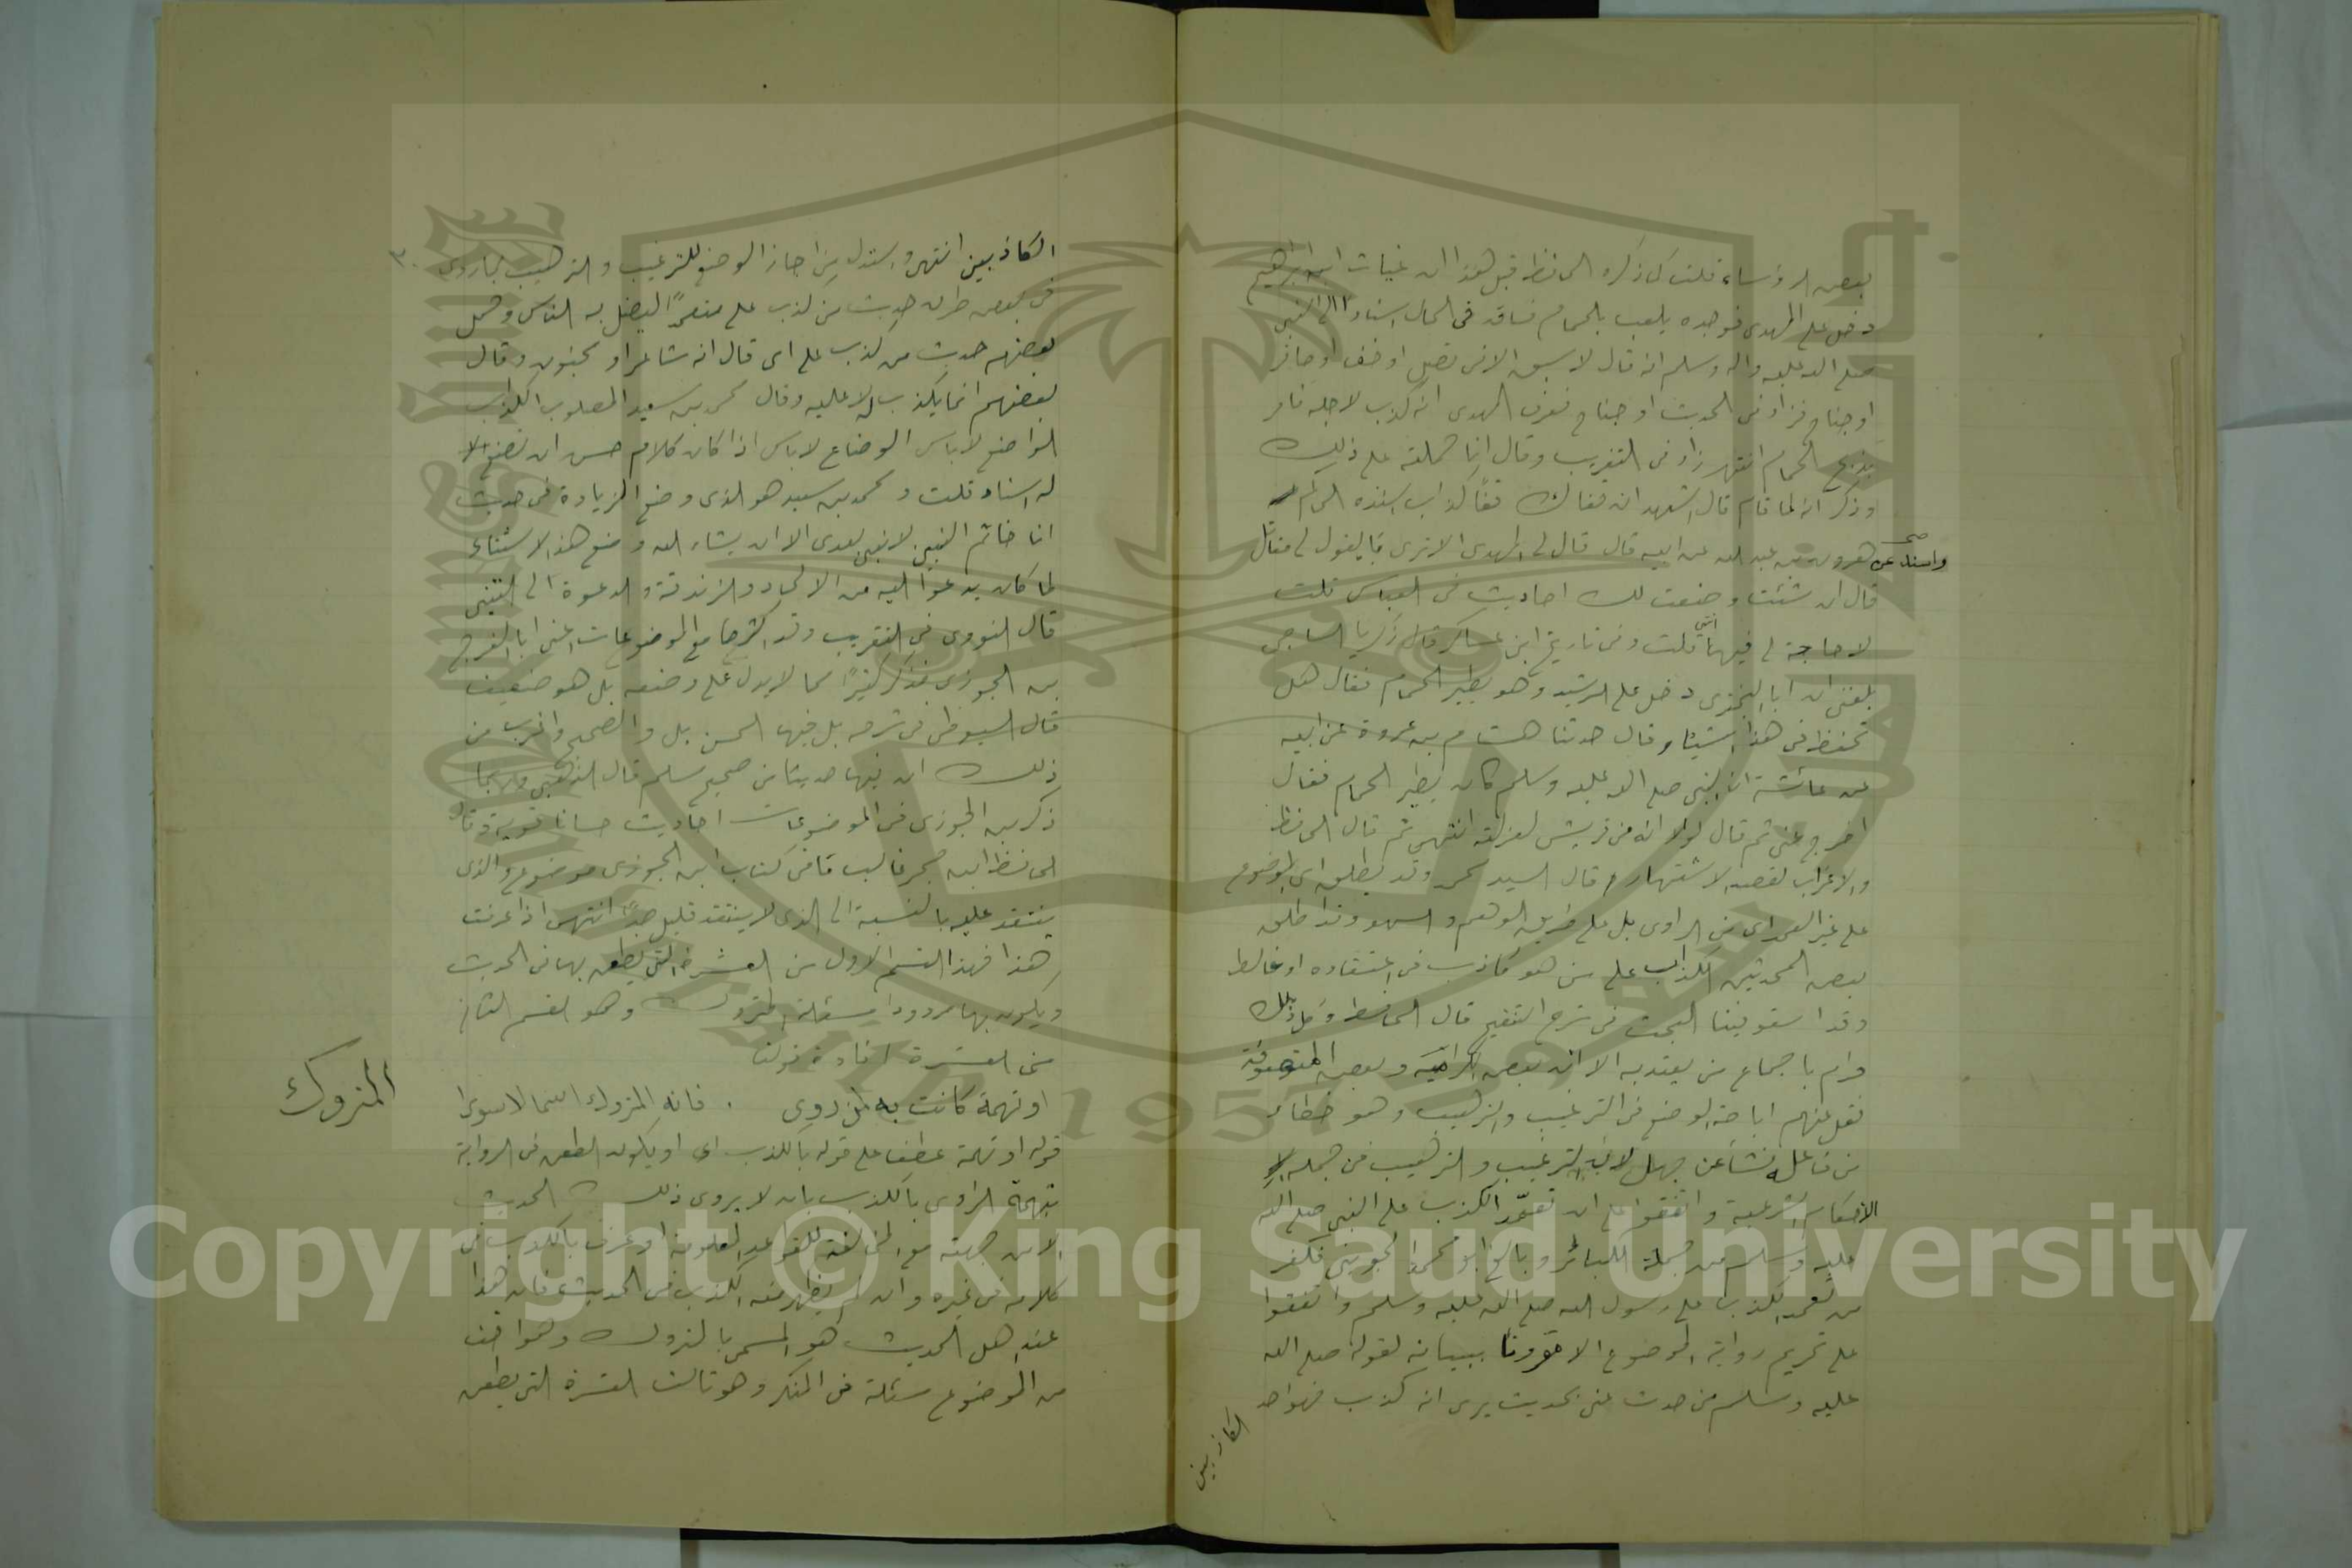 بعض الرؤساء قلت كما ذكره الحافظ قبل هذا ان غياث ابن ابراهيم
دخل على المهدى فوجده يلعب بالحمام فساق فى الحال اسنادا الى النبى
صلى الله عليه واله وسلم انه قال لا سبق الا فى نصل او خف او حافر
او جناح فزاد فى الحديث او جناح فعرف المهدى انه كذب لاجله فامر
بذبح الحمام انتهى زاد فى التقريب وقال انا حملته على ذلك
وذكر انه لما قام قال اشهد ان قفاك قفا كذاب اسنده الحاكم
واسند عن هرون بن عبد الله عن ابيه قال قال لى المهدى الا ترى ما يقول لى مقاتل
قال ان شئت وضعت لك احاديث فى العباس قلت
لا حاجة لى فيها انتهى قلت وفى تاريخ ابن عساكر قال زكريا الساجى
بلغنى ان ابا البخترى دخل على الرشيد وهو يطير الحمام فقال هل
تحفظ فى هذا شيئا وقال حدثنا هشام بن عروة عن ابيه
عن عائشة ان النبى صلى الله عليه وسلم كان يطير الحمام فقال
اخرج عنى ثم قال لولا انه من قريش لعزلته انتهى ثم قال الحافظ
والاغراب لقصد الاشتهار قال السيد محمد وقد يطلق اى الموضوع
على غير العمد اى من الراوى بل على طريق الوهم والسهو وقد اطلق
بعض المحدثين الكذاب على من هو كاذب فى اعتقاده او غالط
وقد استوفينا البحث فى شرح التنقيح قال الحافظ وكل ذلك
حرام باجماع من يعتد به الا ان بعض الكرامية وبعض المتصوفة
نقل عنهم اباحة الوضع فى الترغيب والترهيب وهو خطاء
من فاعله نشأ عن جهل لان الترغيب والترهيب من جملة
الاحكام الشرعية واتفقوا على ان تعمّد الكذب على النبى صلى الله
عليه وسلم من جملة الكبائر وبالغ ابو محمد الجوينى فكفر
من تعمد الكذب على رسول الله صلى الله عليه وسلم واتفقوا
على تحريم رواية الموضوع الا مقرونا ببيانه لقوله صلى الله
عليه وسلم من حدث عنى بحديث يرى انه كذب فهو احد
الكاذبين
٣٠
الكاذبين انتهى واستدل من اجاز الوضع للترغيب والترهيب بما روى
فى بعض طرق حديث من كذب على متعمدًا ليضل به الناس وحمل
بعضهم حديث من كذب على اى قال انه شاعر او مجنون وقال
بعضهم انما يكذب له لا عليه وقال محمد بن سعيد المصلوب الكذاب
الواضع لا باس اذا كان كلام حسن ان تضع
له اسناد قلت ومحمد بن سعيد هو الذى وضع الزيادة فى حديث
انا خاتم النبيين لا نبى بعدى الا ان يشاء الله وضع هذا الاستثناء
لما كان يدعوا اليه من الالحاد والزندقة والدعوة الى التنبى
قال النووى فى التقريب وقد اكثر جامع الموضوعات اعنى ابا الفرج
بن الجوزى فذكر كثيرًا مما لا يدل على وضعه بل هو ضعيف
قال السيوطى فى شرحه بل فيها الحسن بل والصحيح واغرب من
ذلك ان فيها حديثا من صحيح مسلم قال الذهبى وربما
ذكر بن الجوزى فى الموضوعات احاديث حسانا قوية وقال
الحافظ ابن حجر غالب ما فى كتاب ابن الجوزى موضوع والذى
ينتقد عليه بالنسبة الى الذى لا ينتقد قليل جدًا انتهى اذا عرفت
هذا فهذا القسم الاول من العشرة التى يطعن بها فى الحديث
ويكون بها مردودا مسئلة المتروك وهو القسم الثانى
من العشرة افاده قولنا
او تهمة كانت به لمن روى . فانه المتروك
المتروك
قوله او تهمة عطف على قوله بالكذب اى او يكون الطعن فى الرواية
بتهمة الراوى بالكذب بان لا يروى ذلك الحديث
الا من جهته مع المخالفة للقواعد المعلومة او عرف بالكذب فى
كلامه فى غيره وان لم يظهر منه الكذب فى الحديث فان هذا
عند اهل الحديث هو المسمى بالمتروك وهو اخف
من الموضوع مسئلة فى المنكر وهو ثالث العشرة التى يطعن